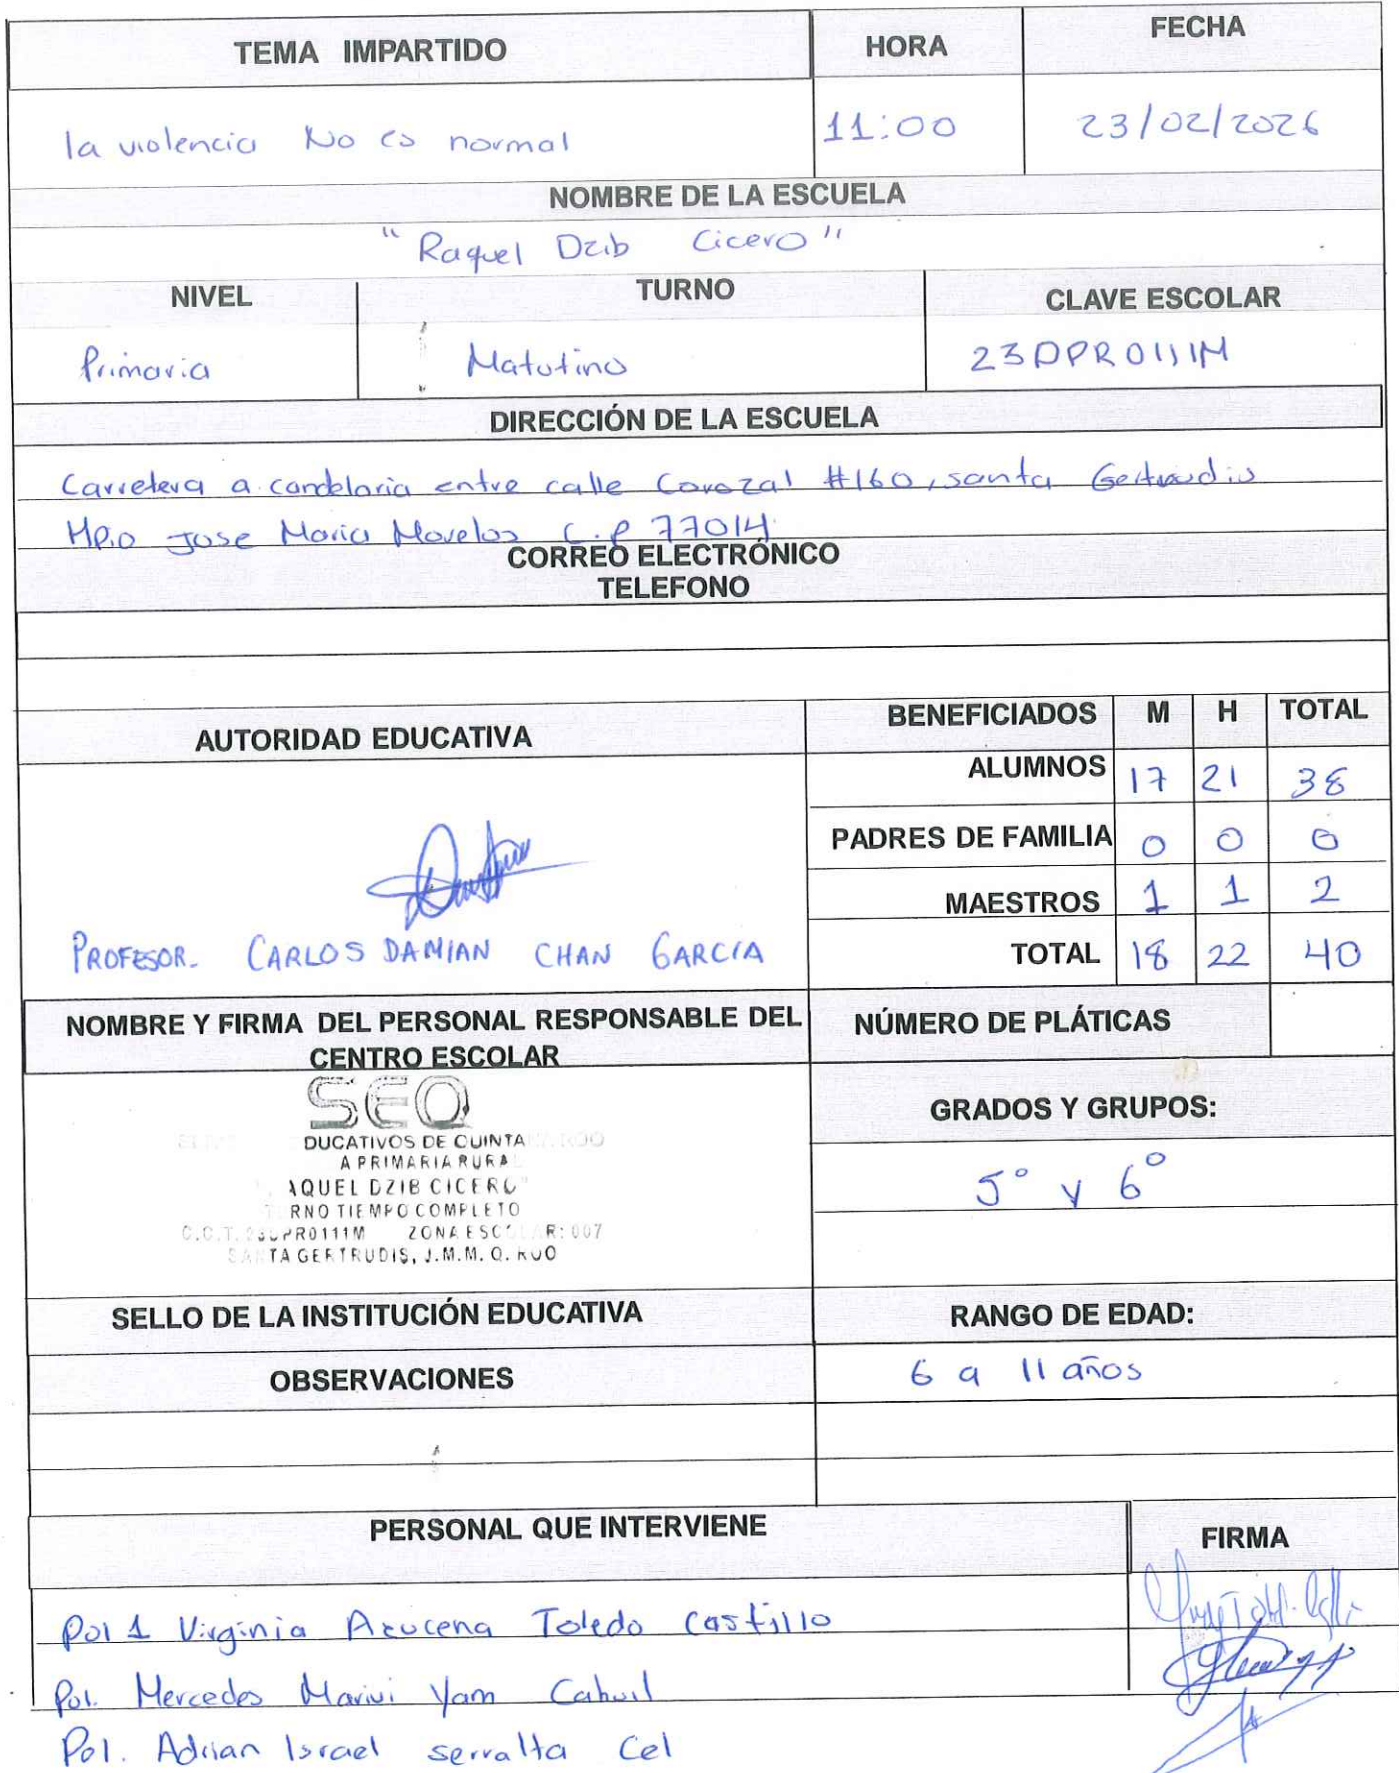 TEMA IMPARTIDO HORA FECHA
la violencia No es normal 11:00 23/02/2026
NOMBRE DE LA ESCUELA
"Raquel Dzib Cicero"
NIVEL TURNO CLAVE ESCOLAR
Primaria Matutino 23DPR0111M
DIRECCIÓN DE LA ESCUELA
Carretera a candelaria entre calle Corozal #160, santa Gertrudis
Mp.o Jose Maria Morelos C.P 77014
CORREO ELECTRÓNICO
TELEFONO
AUTORIDAD EDUCATIVA BENEFICIADOS M H TOTAL
ALUMNOS 17 21 38
PADRES DE FAMILIA 0 0 0
MAESTROS 1 1 2
PROFESOR. CARLOS DAMIAN CHAN GARCIA TOTAL 18 22 40
NOMBRE Y FIRMA DEL PERSONAL RESPONSABLE DEL CENTRO ESCOLAR NÚMERO DE PLÁTICAS
SEQ
DUCATIVOS DE QUINTANA ROO
A PRIMARIA RURAL
AQUEL DZIB CICERO"
RNO TIEMPO COMPLETO
C.C.T. 23DPR0111M ZONA ESCOLAR: 007
SANTA GERTRUDIS, J.M.M. Q. ROO
GRADOS Y GRUPOS:
5° y 6°
SELLO DE LA INSTITUCIÓN EDUCATIVA RANGO DE EDAD:
OBSERVACIONES 6 a 11 años
PERSONAL QUE INTERVIENE FIRMA
Pol 1 Virginia Azucena Toledo Castillo
Pol. Mercedes Marivi Yam Cahuil
Pol. Adrian Israel serralta Cel